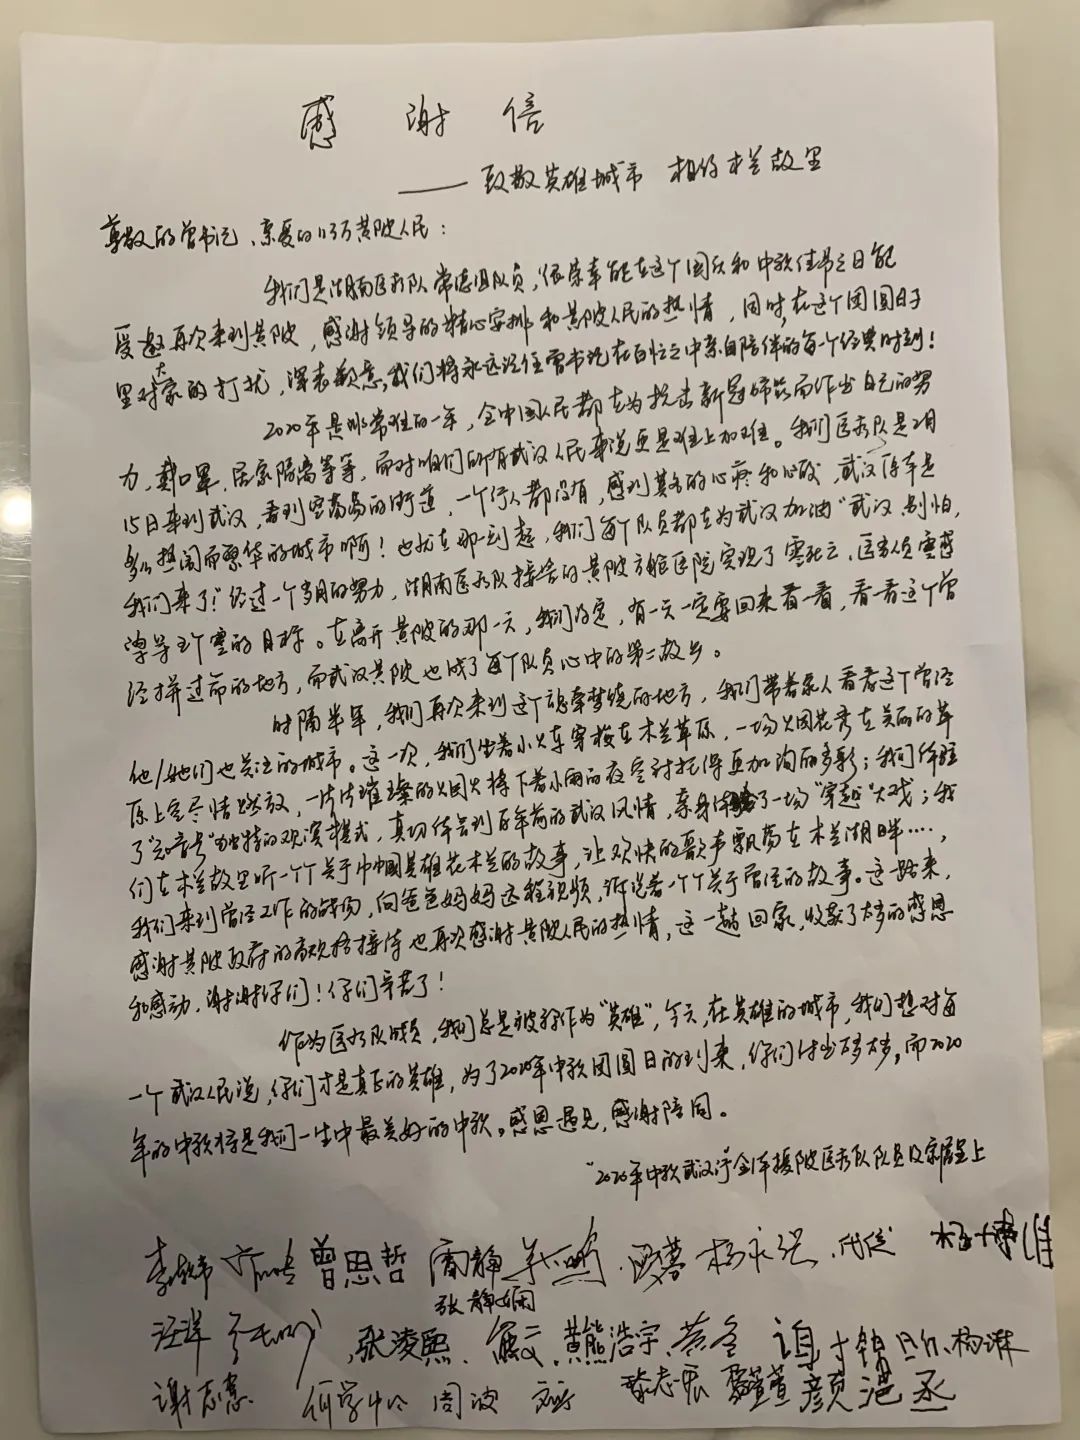 感谢信
——致敬英雄城市 相约木兰故里
尊敬的曾书记、亲爱的113万黄陂人民：
我们是湖南医疗队常德组队员，很荣幸能在这个国庆和中秋佳节之日能
受邀再次来到黄陂，感谢领导的精心安排和黄陂人民的热情，同时，在这个团圆日子
里对大家的打扰，深表歉意，我们将永远记住曾书记在百忙之中亲自陪伴的每个经典时刻！
2020年是非常难的一年，全中国人民都在为抗击新冠肺炎而作出自己的努
力，戴口罩，居家隔离等等，而对咱们所有武汉人民来说更是难上加难。我们医疗队是2月
15日来到武汉，看到空荡荡的街道，一个行人都没有，感到莫名的心疼和心酸，武汉原本是
多么热闹而繁华的城市啊！也就在那一刻起，我们每个队员都在为武汉加油“武汉，别怕，
我们来了！”经过一个多月的努力，湖南医疗队接管的黄陂方舱医院实现了零死亡，医务人员零感
染等五个零的目标。在离开黄陂的那一天，我们约定，有一天一定要回来看一看，看一看这个曾
经拼过命的地方，而武汉黄陂也成了每个队员心中的第二故乡。
时隔半年，我们再次来到这个魂牵梦绕的地方，我们带着家人看看这个曾经
他/她们也关注的城市。这一次，我们坐着小火车穿梭在木兰草原，一场火烟花秀在美丽的草
原上空尽情燃放，一片片璀璨的火烟火将下着小雨的夜空衬托得更加绚丽多彩；我们体验
了“知音号”独特的观演模式，真切体会到百年前的武汉风情，亲身体验了一场“穿越”大戏；我
们在木兰故里听一个个关于巾帼英雄花木兰的故事，让欢快的歌声飘荡在木兰湖畔……，
我们来到曾经工作的战场，向爸爸妈妈远程视频，诉说着一个个关于曾经的故事。这一路来，
感谢黄陂政府的高规格接待也再次感谢黄陂人民的热情，这一趟回家，收获了太多的感恩
和感动，谢谢你们！你们辛苦了！
作为医疗队成员，我们总是被称作为“英雄”，今天，在英雄的城市，我们想对每
一个武汉人民说，你们才是真正的英雄，为了2020年中秋团圆日的到来，你们付出太多太多，而2020
年的中秋将是我们一生中最美好的中秋。感恩遇见，感谢陪同。
2020年中秋武汉行全体援陂医疗队队员及家属呈上
曾思哲 雷静 杨永强
张静娴
汪洋 张凌熙 黄熊浩宇 黄冬 杨琳
谢志慧 何学中 周波 黎志宏 颜滟丞